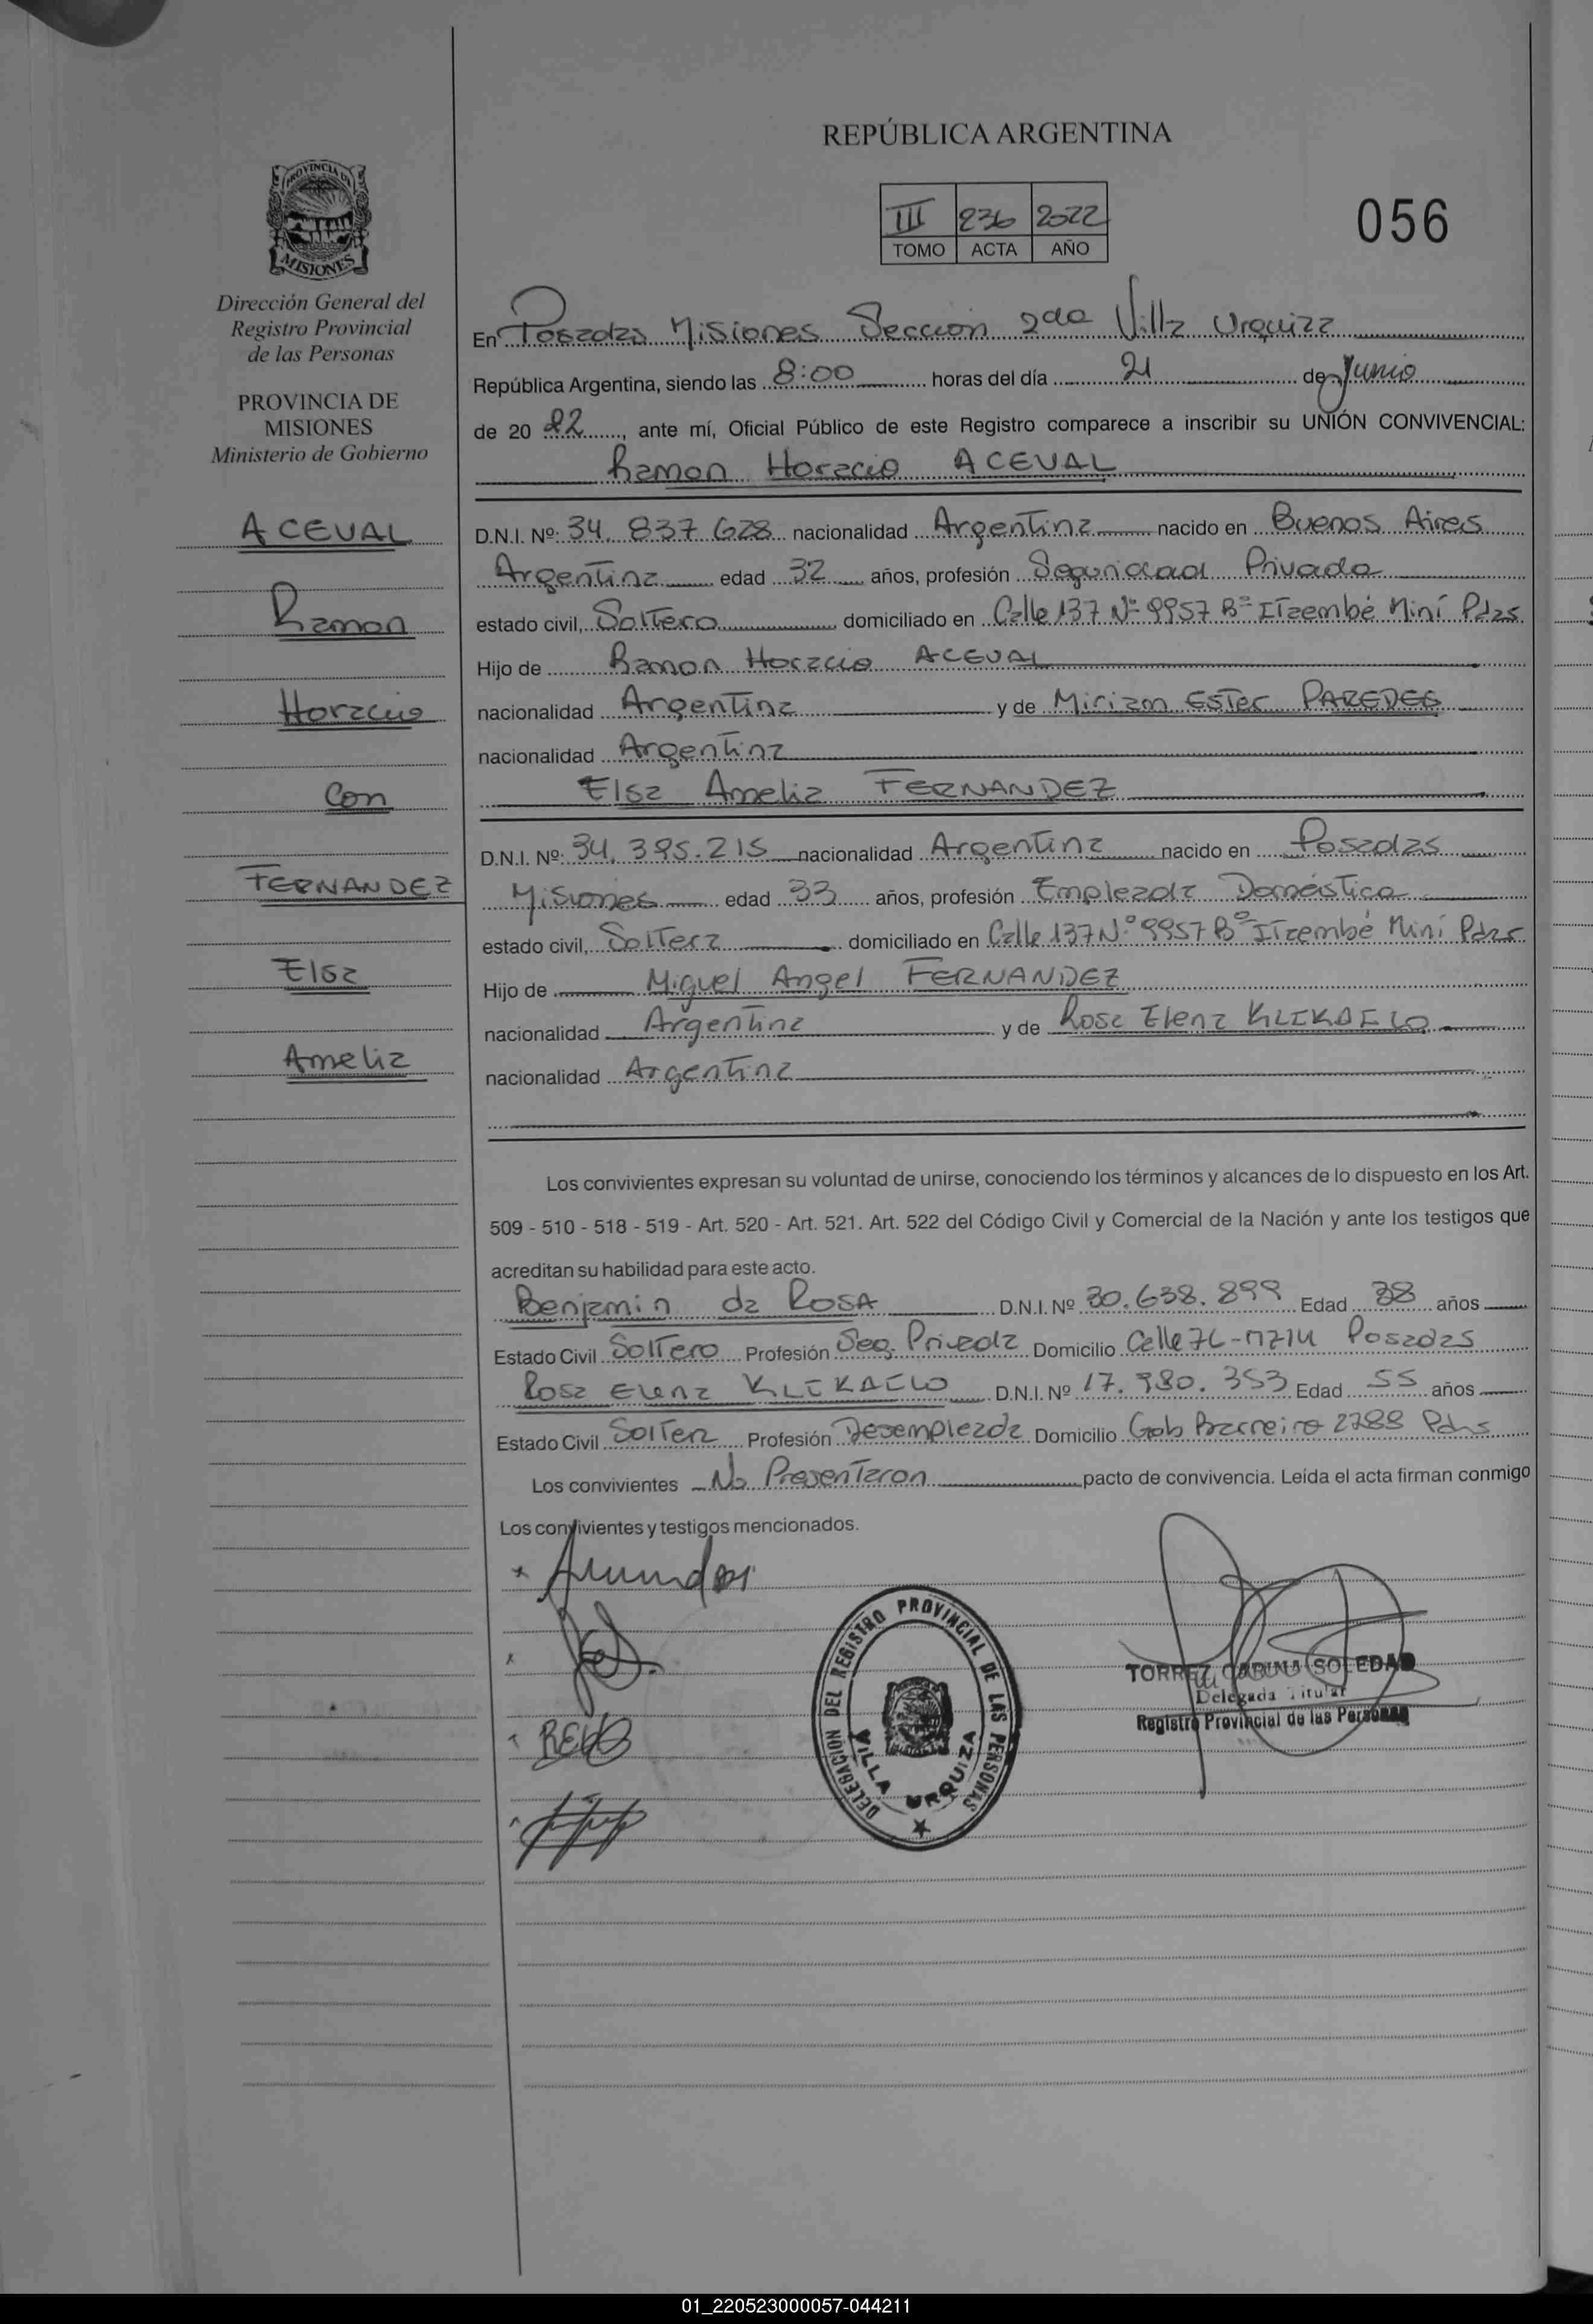 REPÚBLICA ARGENTINA
III 236 2022
TOMO ACTA AÑO
056
PROVINCIA DE
MISIONES
Dirección General del
Registro Provincial
de las Personas
PROVINCIA DE
MISIONES
Ministerio de Gobierno
ACEVAL
Ramon
Horacio
Con
FERNANDEZ
Elsa
Amelia
En Posadas Misiones Seccion 2da Villa Urquiza
República Argentina, siendo las 8:00 horas del día 21 de Junio
de 20 22, ante mí, Oficial Público de este Registro comparece a inscribir su UNIÓN CONVIVENCIAL:
Ramon Horacio ACEVAL
D.N.I. Nº: 34.837.628 nacionalidad Argentina nacido en Buenos Aires
Argentina edad 32 años, profesión Seguridad Privada
estado civil, Soltero domiciliado en Calle 137 Nº 9957 Bº Itaembé Miní Pdas
Hijo de Ramon Horacio ACEVAL
nacionalidad Argentina y de Miriam Ester PAREDES
nacionalidad Argentina
Elsa Amelia FERNANDEZ
D.N.I. Nº: 34.395.215 nacionalidad Argentina nacido en Posadas
Misiones edad 33 años, profesión Empleada Doméstica
estado civil, Soltera domiciliado en Calle 137 Nº 9957 Bº Itaembé Miní Pdas
Hijo de Miguel Angel FERNANDEZ
nacionalidad Argentina y de Rosa Elena KLEKAILO
nacionalidad Argentina
Los convivientes expresan su voluntad de unirse, conociendo los términos y alcances de lo dispuesto en los Art.
509 - 510 - 518 - 519 - Art. 520 - Art. 521. Art. 522 del Código Civil y Comercial de la Nación y ante los testigos que
acreditan su habilidad para este acto.
Benjamin da ROSA D.N.I. Nº 30.638.899 Edad 38 años
Estado Civil Soltero Profesión Seg. Privada Domicilio Calle Posadas
Rosa Elena KLEKAILO D.N.I. Nº 17.980.353 Edad 55 años
Estado Civil Soltera Profesión Desempleada Domicilio Gob Barreiro 2788 Pdas
Los convivientes No Presentaron pacto de convivencia. Leída el acta firman conmigo
Los convivientes y testigos mencionados.
DELEGACIÓN DEL REGISTRO PROVINCIAL DE LAS PERSONAS
VILLA URQUIZA
TORREZ SOLEDAD
Delegada Titular
Registro Provincial de las Personas
01_220523000057-044211